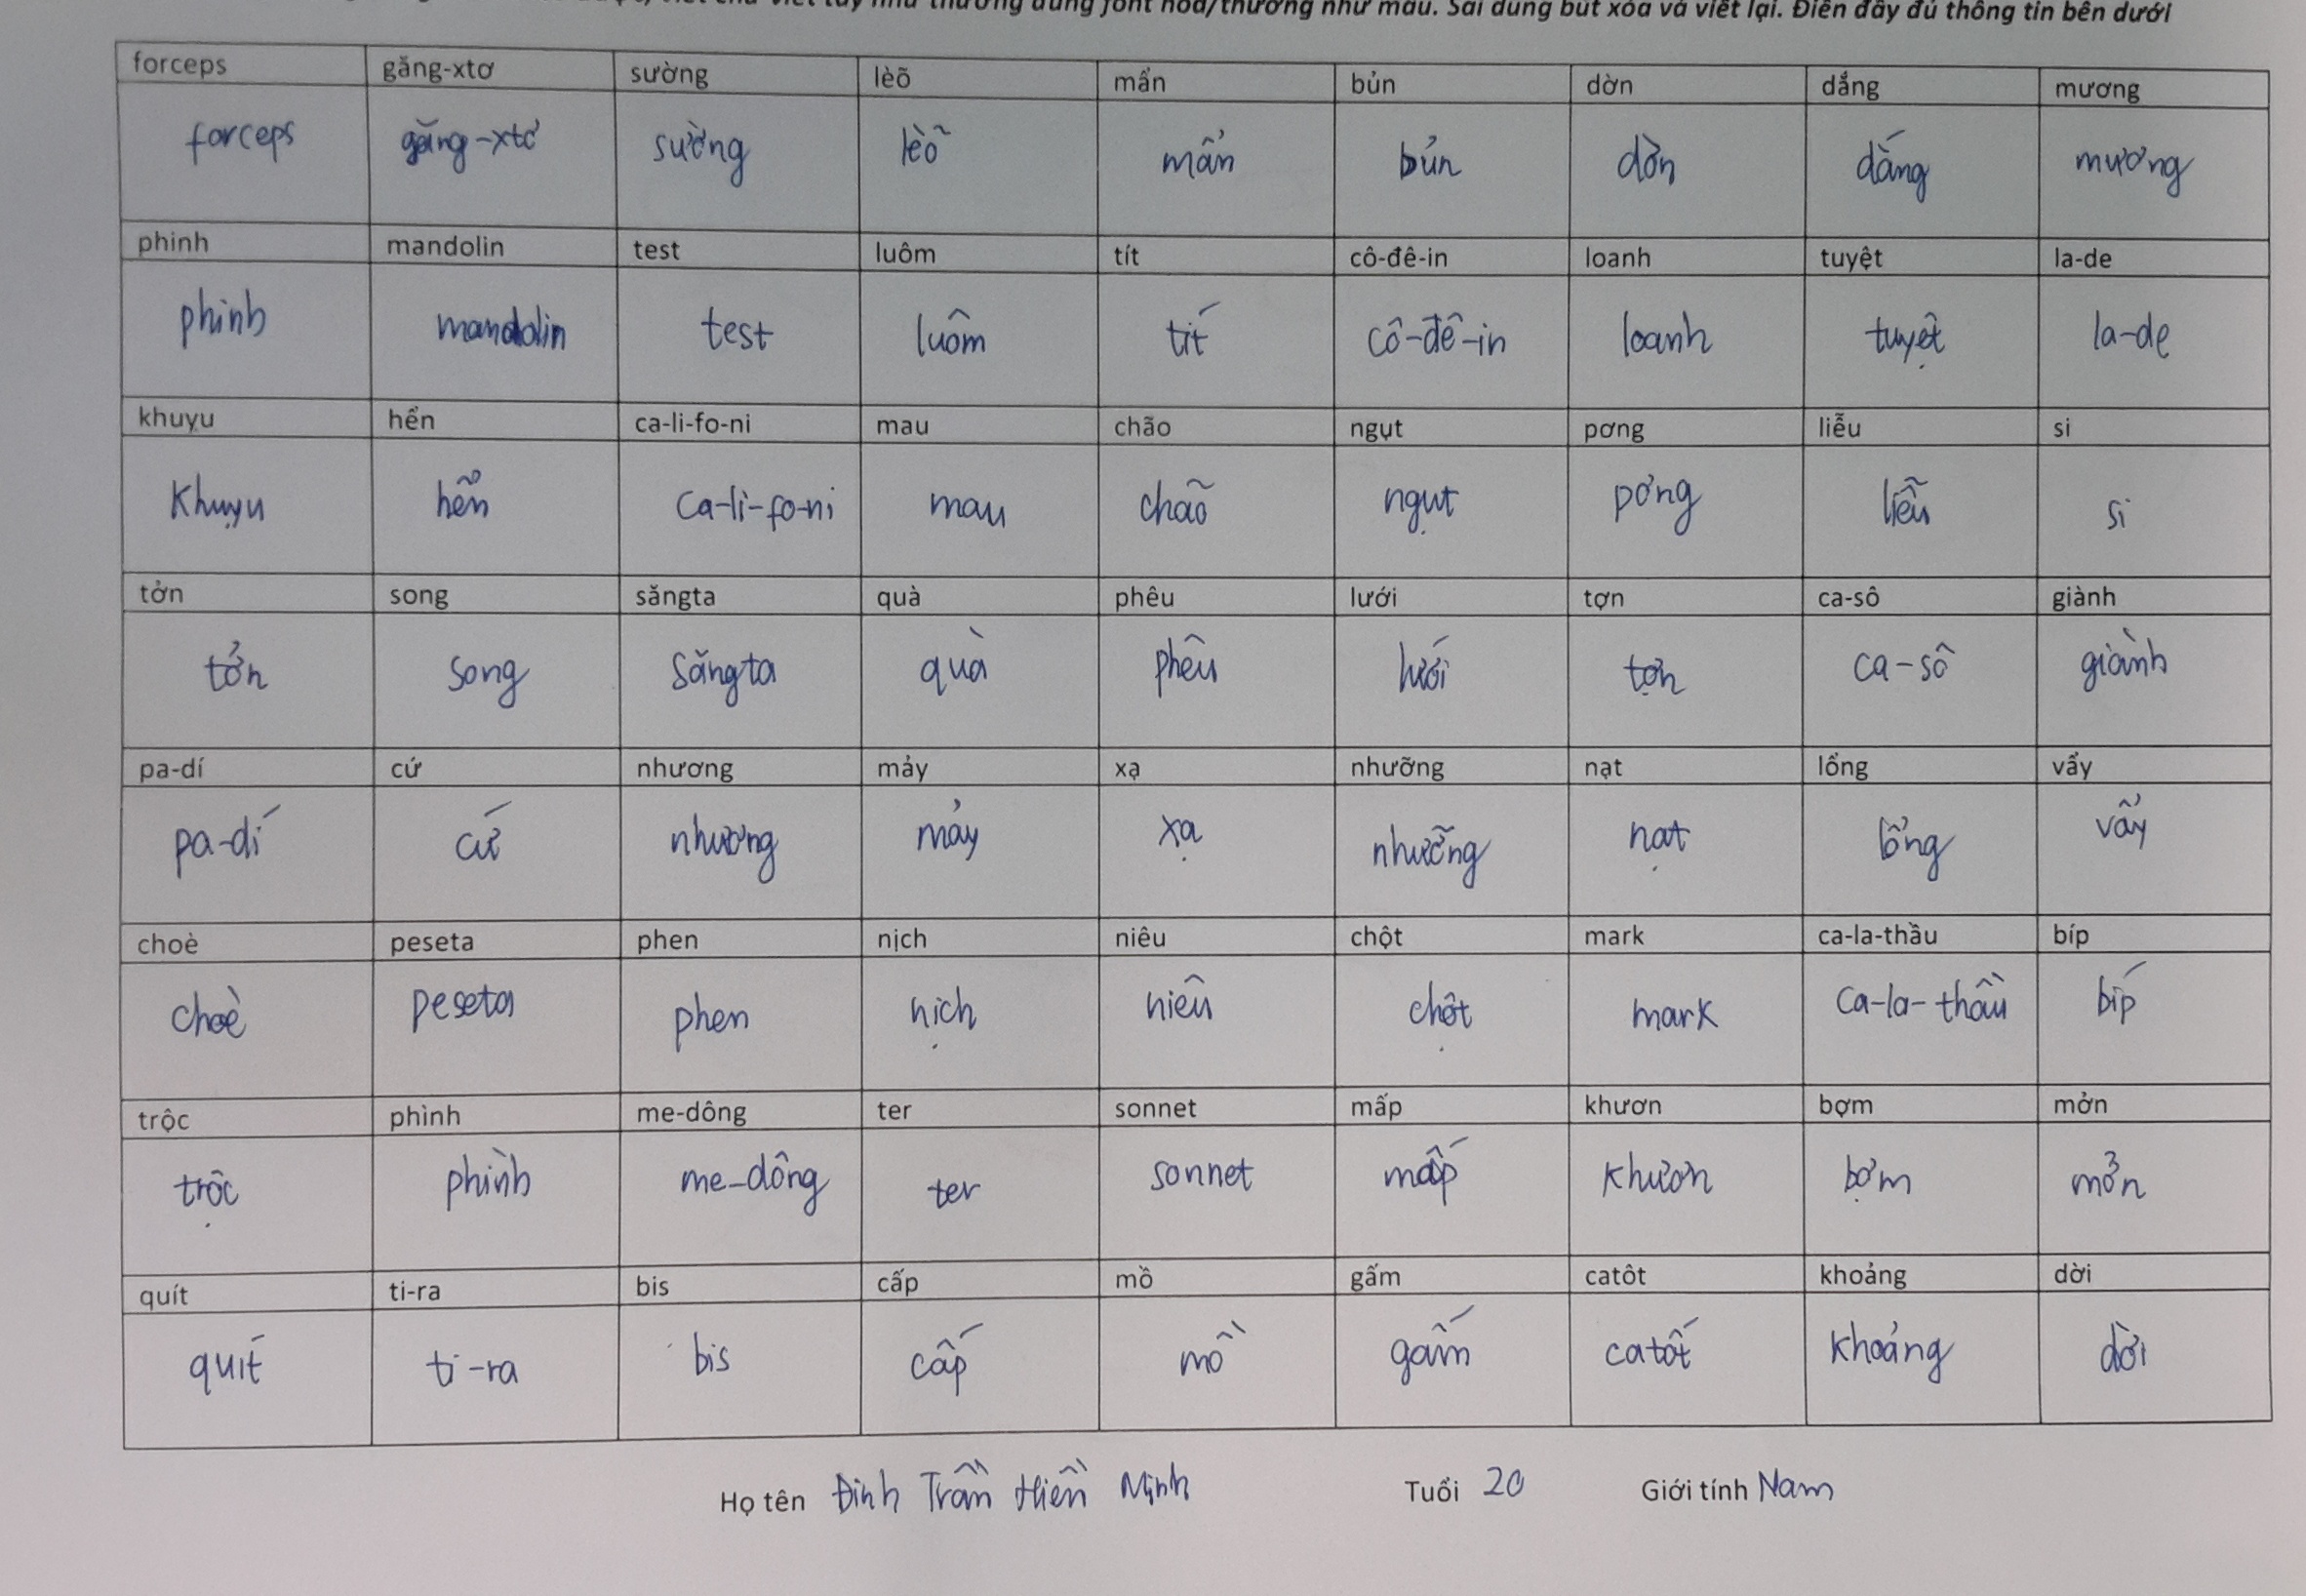 viết chữ viết tay như thường dùng font hoa/thường như mẫu. Sai dùng bút xóa và viết lại. Điền đầy đủ thông tin bên dưới
forceps găng-xtơ sường lèõ mẩn bủn dờn dắng mương
forceps găng-xtơ sường lèõ mẩn bủn dờn dắng mương
phinh mandolin test luôm tít cô-đê-in loanh tuyệt la-de
phinh mandolin test luôm tít cô-đê-in loanh tuyệt la-de
khuỵu hển ca-li-fo-ni mau chão ngụt pơng liễu si
khuỵu hển ca-li-fo-ni mau chão ngụt pơng liễu si
tởn song săngta quà phêu lưới tợn ca-sô giành
tởn song săngta quà phêu lưới tợn ca-sô giành
pa-dí cứ nhương mảy xạ nhưỡng nạt lổng vẩy
pa-dí cứ nhương mảy xạ nhưỡng nạt lổng vẩy
choè peseta phen nịch niêu chột mark ca-la-thầu bíp
choè peseta phen nịch niêu chột mark ca-la-thầu bíp
trộc phình me-dông ter sonnet mấp khươn bợm mởn
trộc phình me-dông ter sonnet mấp khươn bợm mởn
quít ti-ra bis cấp mồ gấm catôt khoảng dời
quít ti-ra bis cấp mồ gấm catốt khoảng dời
Họ tên Đinh Trần Hiền Minh Tuổi 20 Giới tính Nam